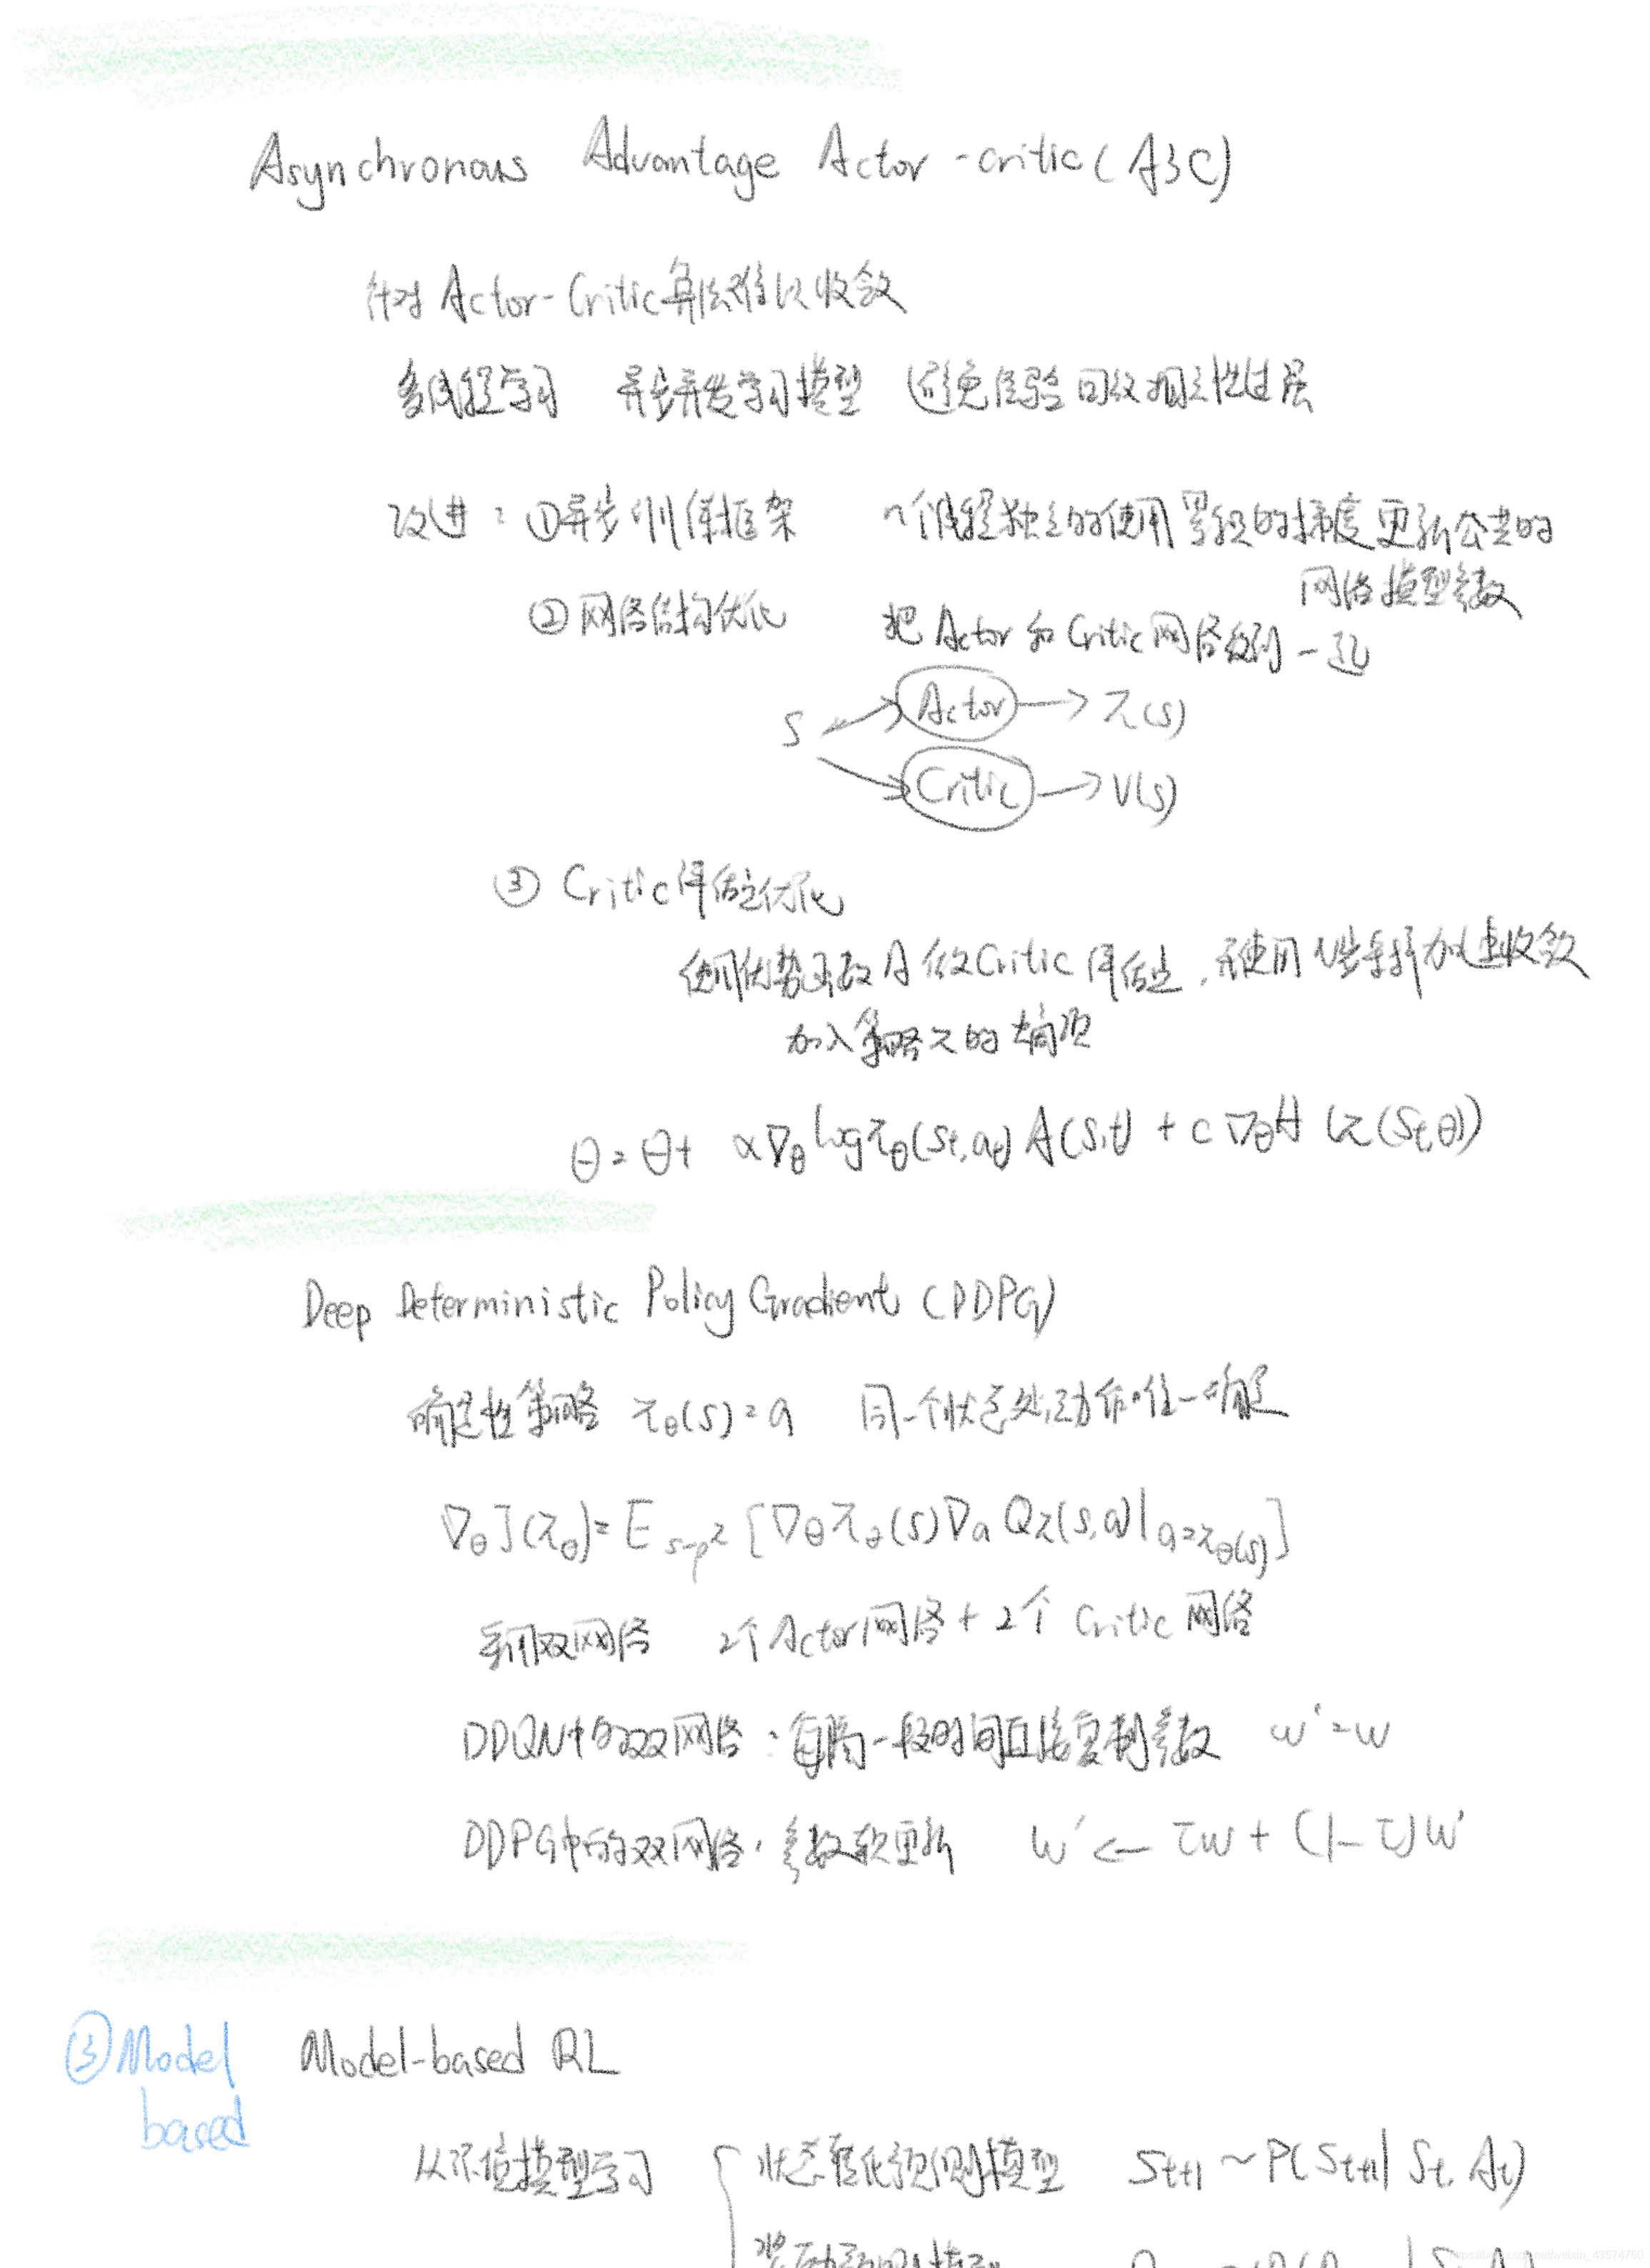 Asynchronous Advantage Actor-critic (A3C)
针对 Actor-Critic算法难以收敛
多线程学习 异步并发学习模型 避免经验回放相关性过强
改进：①异步训练框架 n个线程独立的使用累积的梯度更新公共的
网络模型参数
②网络结构优化 把 Actor 和 Critic网络放到一起
S Actor → π(s)
Critic → V(s)
③ Critic评估点优化
使用优势函数A作为Critic评估点，采用N步采样加速收敛
加入策略π的熵项
θ = θ + α∇θ log πθ(st,at) A(s,t) + c ∇θ H (π(St,θ))
Deep Deterministic Policy Gradient (DDPG)
确定性策略 πθ(s) = a 同一个状态处,动作唯一确定
∇θ J(πθ) = E s~ρπ [∇θ πθ(s) ∇a Qπ(s,a)| a=πθ(s)]
采用双网络 2个Actor网络 + 2个 Critic 网络
DDQN中的双网络：每隔一段时间直接复制参数 w' = w
DDPG中的双网络：参数软更新 w' ← τw + (1-τ)w'
③Model Model-based RL
based
从环境模型学习 状态转化预测模型 St+1 ~ P(St+1 | St, At)